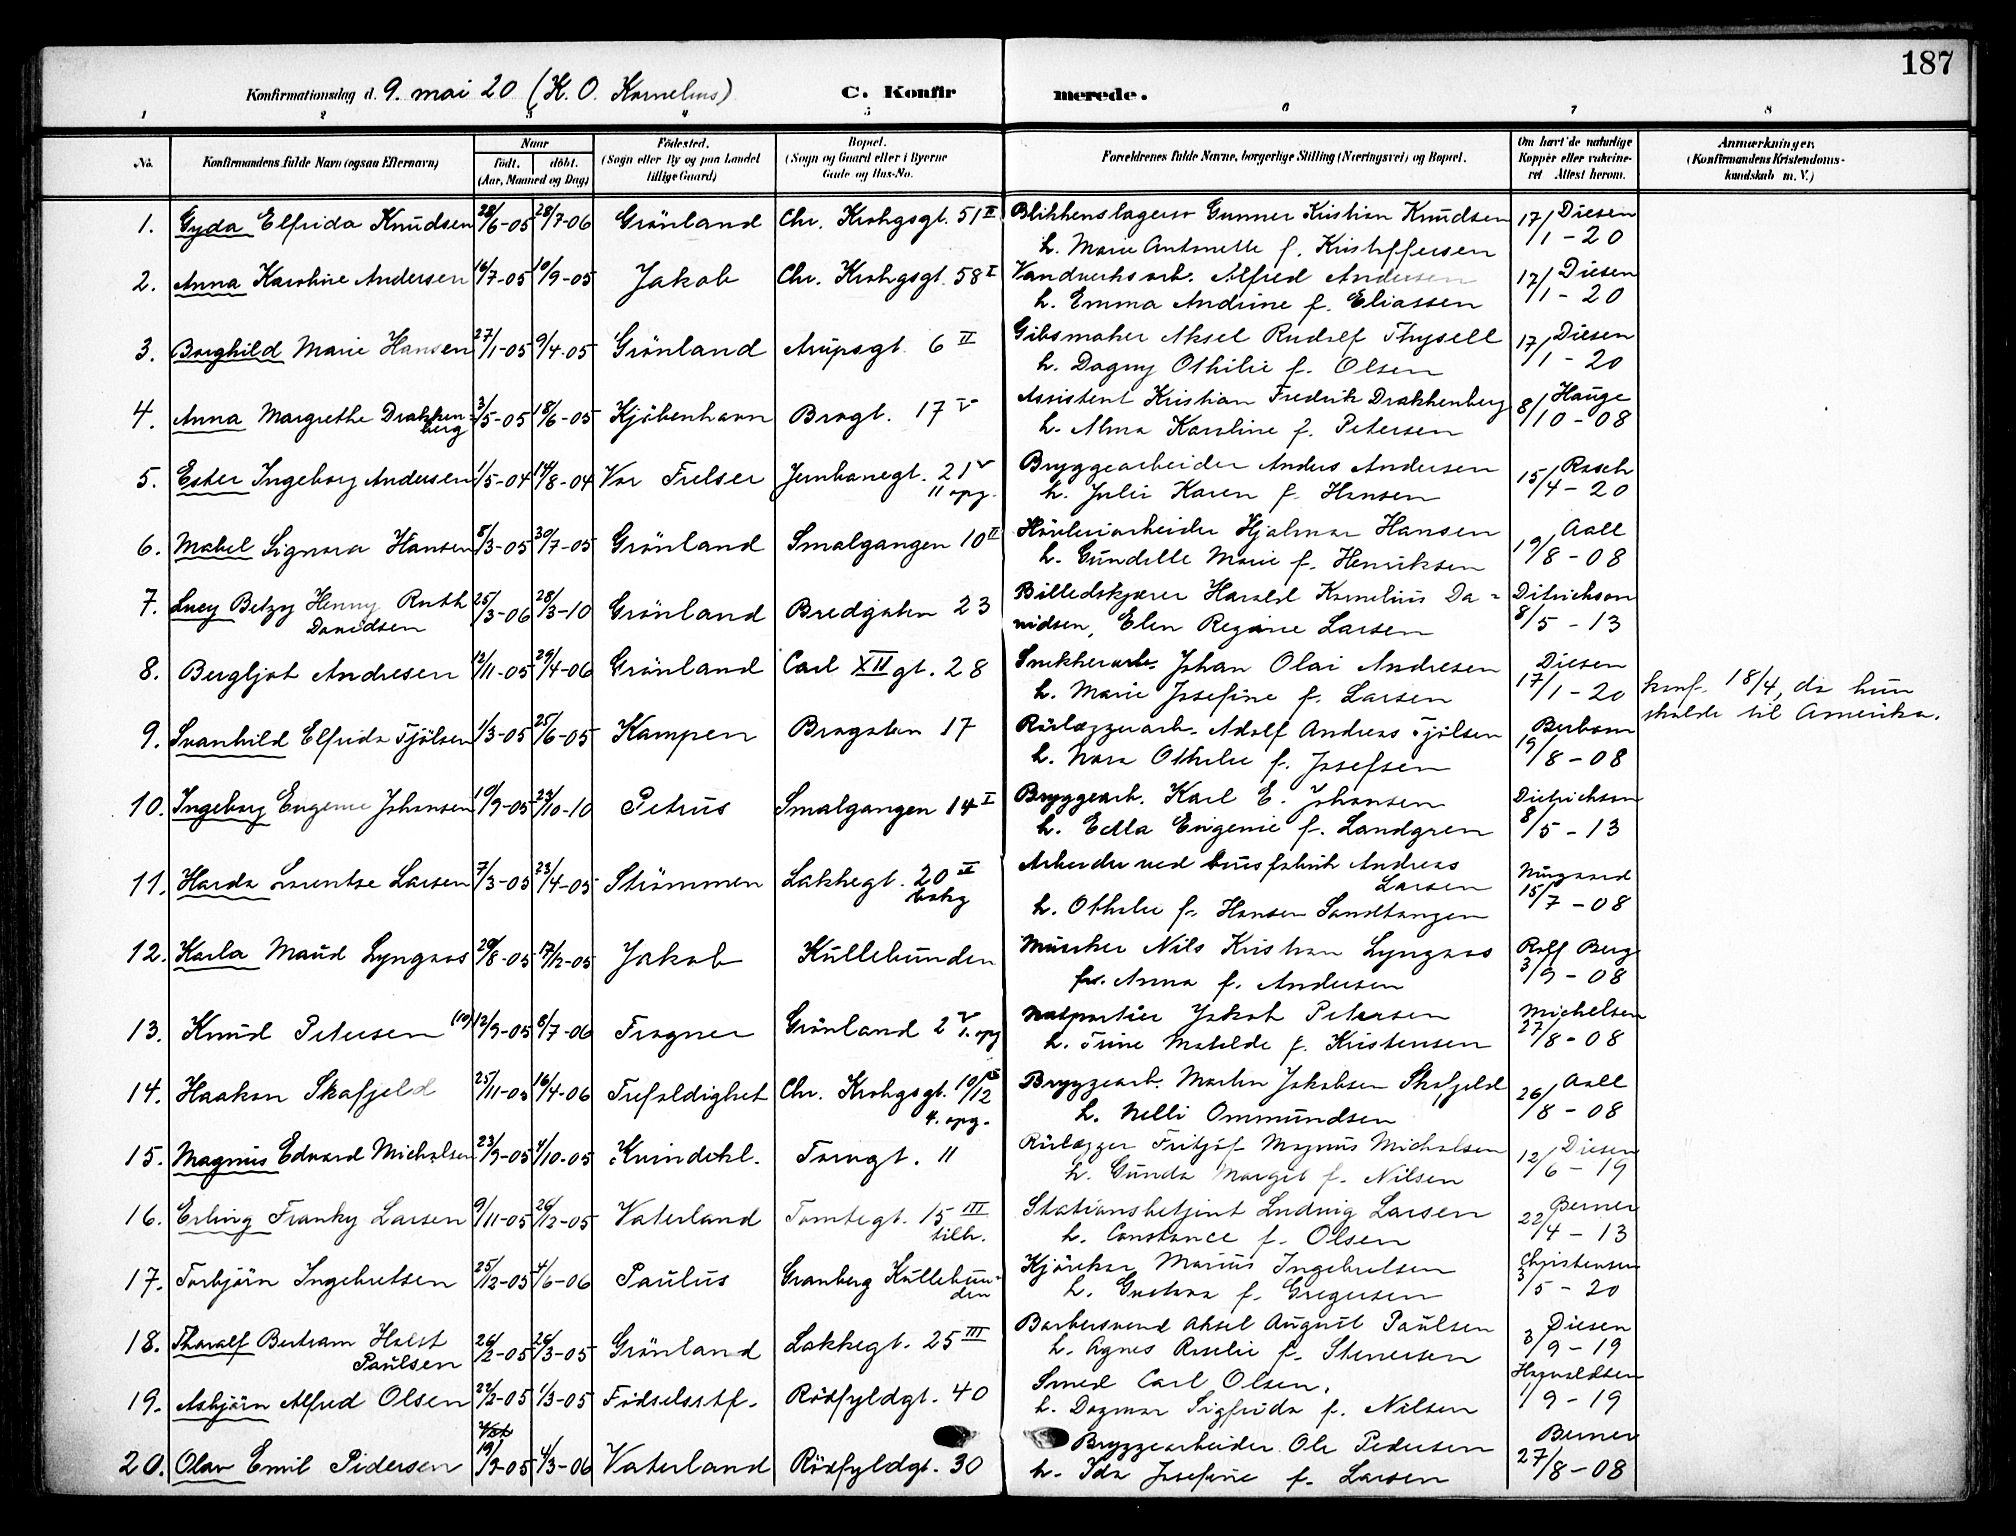 187
Konfirmationsdag d. 9. mai 20 (K. O. Kornelius) C. Konfirmerede.
1 2 3 4 5 6 7 8
No. Konfirmandens fulde Navn (ogsaa Efternavn) Naar født. døbt. (Aar, Maaned og Dag) Fødested. (Sogn eller By og paa Landet tillige Gaard) Bopæl. (Sogn og Gaard eller i Byerne Gade og Hus-No. Forældrenes fulde Navne, borgerlige Stilling (Næringsvei) og Bopæl. Om havt de naturlige Kopper eller vakcineret Attest herom. Anmærkninger. (Konfirmandens Kristendomskundskab m. V.)
1. Gyda Elfrida Knudsen 28/6-05 28/7-06 Grönland Chr. Krohgsgt. 51 II Blikkenslager Gunner Kristian Knudsen 17/1-20 Diesen
h. Marie Antonette f. Kristoffersen
2. Anna Karoline Andersen 16/7-05 10/9-05 Jakob Chr. Krohgsgt. 58 I Vandverksarb. Alfred Andersen 17/1-20 Diesen
h. Emma Andrine f. Eliassen
3. Borghild Marie Hansen 27/1-05 9/4-05 Grönland Arupsgt. 6 II Gibsmaker Aksel Rudolf Thysell 17/1-20 Diesen
h. Dagny Othilie f. Olsen
4. Anna Margrethe Drakkenberg 3/5-05 18/6-05 Kjöbenhavn Brogt. 17 V Assistent Kristian Fredrik Drakkenberg 8/10-08 Hauge
h. Alma Karoline f. Petersen
5. Ester Ingeborg Andersen 1/5-04 14/8-04 Vor Frelser Jernbanegt. 21 V 11 opg. Bryggearbeider Anders Andersen 15/4-20 Rasch
h. Julie Karen f. Hansen
6. Mabel Signora Hansen 8/3-05 30/7-05 Grönland Smalgangen 10 II Hövleriarbeider Hjalmar Hansen 19/8-08 Aall
h. Gundelle Marie f. Henriksen
7. Lucy Betzy Henny Ruth Davidsen 25/3-06 28/3-10 Grönland Bredgaten 23 Billedskjærer Harald Kornelius Da= Ditrichson 8/5-13
vidsen, Elen Regine Larsen
8. Bergljot Andresen 12/11-05 29/4-06 Grönland Carl XII gt. 28 Snekkerarb. Johan Olai Andresen Diesen 17/1-20 konf. 18/4, da hun
h. Marie Josefine f. Larsen skulde til Amerika.
9. Svanhild Elfrida Tjölsen 1/3-05 25/6-05 Kampen Brogaten 17 Rörlæggerarb. Adolf Andreas Tjölsen 19/8-08
h. Nora Othilie f. Josefsen
10. Ingeborg Eugenie Johansen 19/9-05 23/10-10 Petrus Smalgangen 14 I Bryggearb. Karl E. Johansen Dietrichson 8/5-13
h. Edla Eugenie f. Landgren
11. Harda Lorentse Larsen 7/3-05 23/4-05 Strömmen Lakkegt. 20 II bakg Arbeider ved Andreas Larsen 15/7-08
h. Othilie f. Hansen Sandtangen
12. Karla Maud Lyngaas 29/8-05 17/12-05 Jakob Kullebunden Murer Nils Kristian Lyngaas Rolf Berg 3/9-08
fr. Anna f. Andersen
13. Knud Petersen (19) 12/9-05 8/7-06 Frogner Grönland 2 V 1. opg Natportier Jakob Petersen Michelsen 27/8-08
h. Trine Matilde f. Kristensen
14. Haakon Skafjeld 25/11-05 16/4-06 Trefoldighet Chr. Krohgsgt. 10/12 4. opg. Bryggearb. Martin Jakobsen Skafjeld 26/8-08 Aall
h. Nelli Ommundsen
15. Magnus Edvard Micholsen 23/9-05 4/10-05 Kvindekl. Torvgt. 11 Rörlægger Fritjof Magnus Micholsen 12/6-19 Diesen
h. Gunda Margit f. Nilsen
16. Erling Franky Larsen 9/11-05 26/12-05 Vaterland Tomtegt. 15 III tilh. Stationsbetjent Ludvig Larsen 22/4-13 Berner
h. Constance f. Olsen
17. Torbjörn Ingebretsen 25/12-05 4/6-06 Paulus Granberg Kullebunden Kjörekar Marius Ingebretsen Christensen 3/5-20
h. Gustava f. Gregersen
18. Thoralf Bertram Holst Paulsen 26/2-05 26/3-05 Grönland Lakkegt. 25 III Barbersvend Aksel August Paulsen 3/9-19 Diesen
h. Agnes Roselie f. Stenersen
19. Asbjörn Alfred Olsen 22/2-05 1/3-05 Födselsstf. Rödfyldgt. 40 Smed Carl Olsen. Haavaldsen 1/9-19
h. Dagmar Sigfrida f. Nilsen
20. Olav Emil Pedersen 19/9-05 4/3-06 Vaterland Rödfyldgt. 30 Bryggearbeider Ole Pedersen Berner 27/8-08
h. Ida Josefine f. Larsen